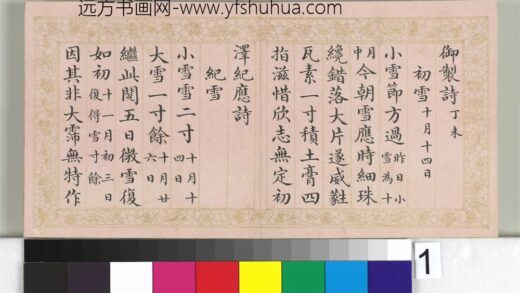 远方书画网-www.yfshuhua.com
御製詩丁未
初雪十月十四日
小雪節方過昨日小雪為十
月中今朝雪應時細珠
纔錯落大片遂葳蕤
瓦素一寸積土膏四
指滋惜欣志無定初
澤紀應詩
紀雪
小雪雪二寸十月十四日
大雪一寸餘十月廿六日
繼此閱五日微雪復
如初十一月初三日復得雪寸餘
因其非大霈無特作
1